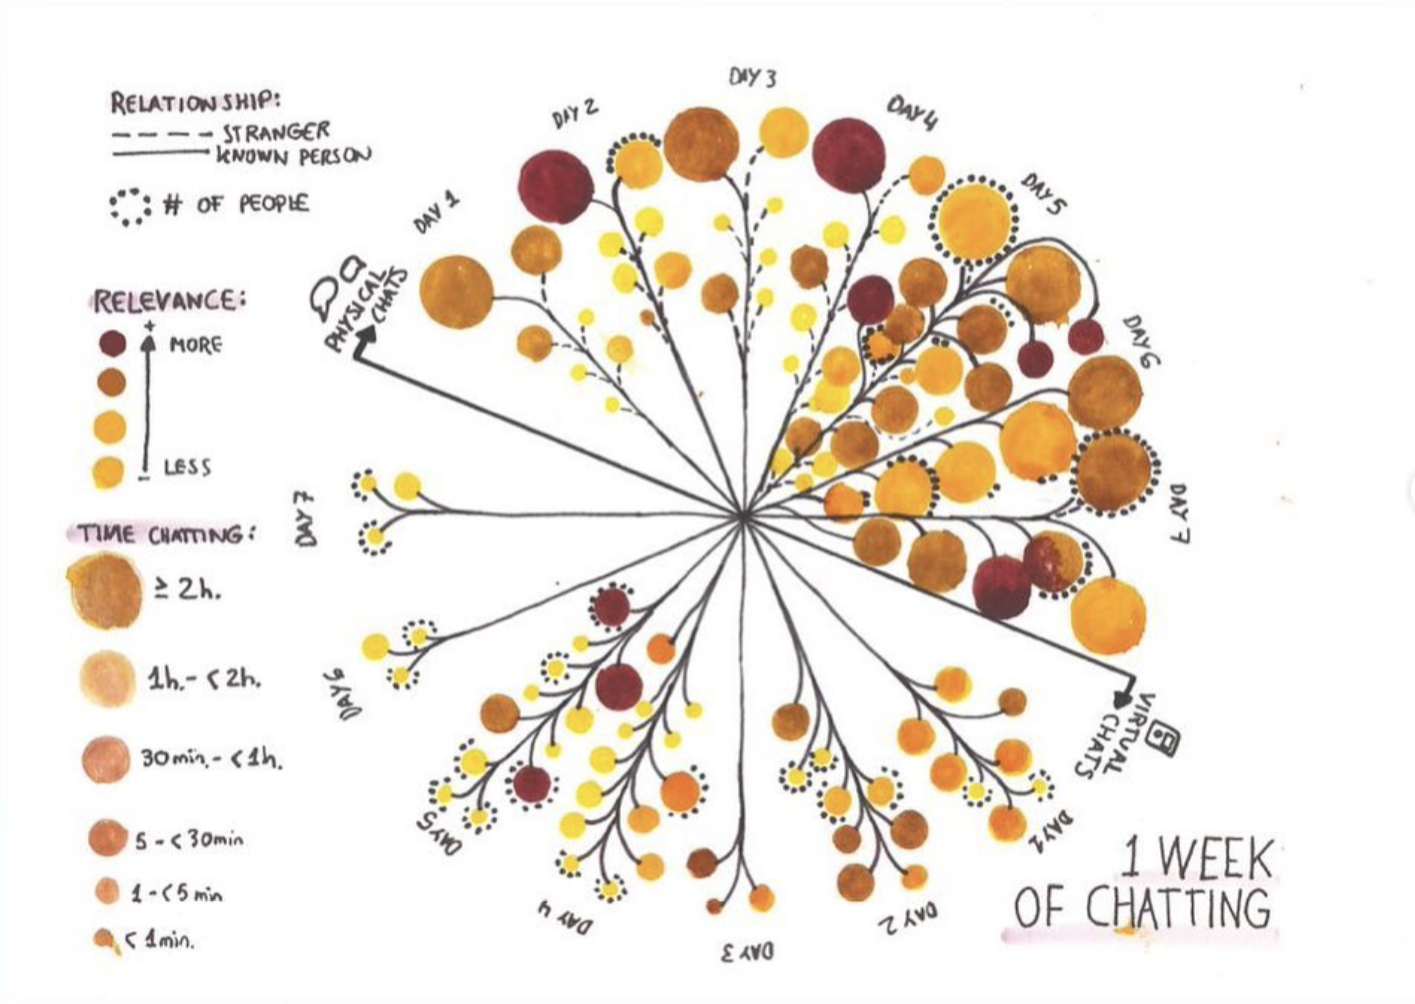 RELATIONSHIP:
STRANGER
KNOWN PERSON
# OF PEOPLE
RELEVANCE:
+
MORE
-
LESS
TIME CHATTING:
≥ 2h.
1h.- <2h.
30min.- <1h.
5 - <30min
1 - <5 min
< 1min.
PHYSICAL
CHATS
DAY 1
DAY 2
DAY 3
DAY 4
DAY 5
DAY 6
DAY 7
VIRTUAL
CHATS
DAY 1
DAY 2
DAY 3
DAY 4
DAY 5
DAY 6
DAY 7
1 WEEK
OF CHATTING